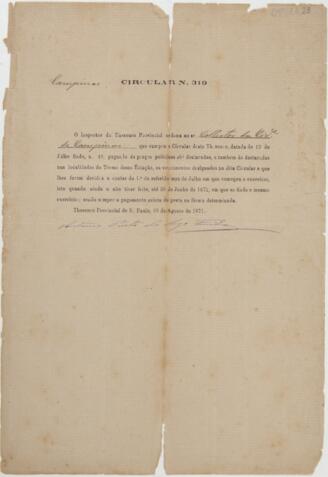 Campinas
CIRCULAR N. 319
O Inspector do Thesouro Provincial ordena ao sr. Collector da Cid.e
de Campinas que cumpra a Circular deste Thesouro, datada de 12 de
Julho findo, n. pagando ás praças policiaes abi declaradas, e tambem ás destacadas
nas localidades do Termo dessa Estação, os vencimentos designados na dita Circular e que
lhes forem devidos a contar do 1.º do referido mez de Julho em que começou o exercicio,
isto quando ainda o não tiver feito, até 30 de Junho de 1872, em que se finda o mesmo
exercicio; sendo o pagamento de prets na fórma determinada.
Thesouro Provincial de S. Paulo, de Agosto de 1871.
Antonio